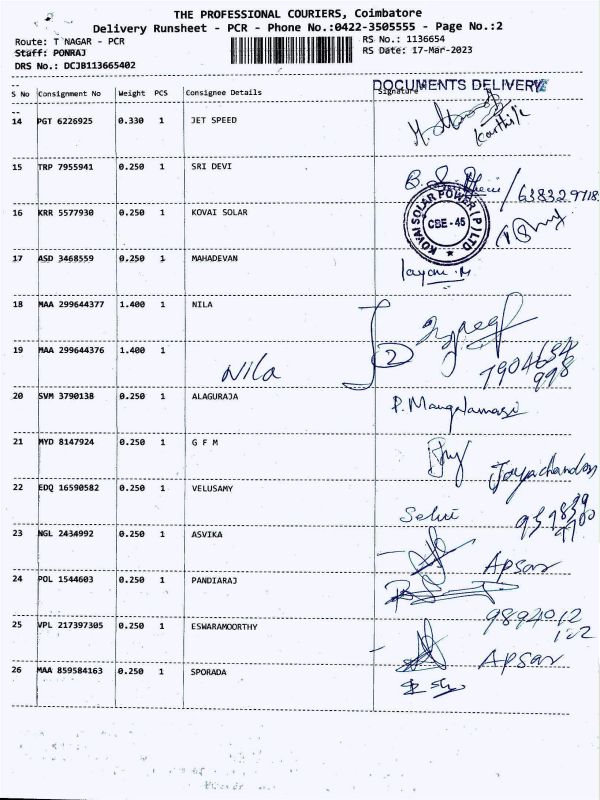 THE PROFESSIONAL COURIERS, Coimbatore
Delivery Runsheet - PCR - Phone No.:0422-3505555 - Page No.:2
Route: T NAGAR - PCR
RS No.: 1136654
Staff: PONRAJ
RS Date: 17-Mar-2023
DRS No.: DCJB113665402
DOCUMENTS DELIVERY
S No Consignment No Weight PCS Consignee Details Signature
14 PGT 6226925 0.330 1 JET SPEED
Karthik
15 TRP 7955941 0.250 1 SRI DEVI
16 KRR 5577930 0.250 1 KOVAI SOLAR
KOVAI SOLAR POWER (P) LTD
CBE - 45
17 ASD 3468559 0.250 1 MAHADEVAN
18 MAA 299644377 1.400 1 NILA
19 MAA 299644376 1.400 1 Nila 2
20 SVM 3790138 0.250 1 ALAGURAJA
21 MYD 8147924 0.250 1 G F M
22 EDQ 16590582 0.250 1 VELUSAMY
Selvi
23 NGL 2434992 0.250 1 ASVIKA
Apsar
24 POL 1544603 0.250 1 PANDIARAJ
25 VPL 217397305 0.250 1 ESWARAMOORTHY
Apsar
26 MAA 859584163 0.250 1 SPORADA